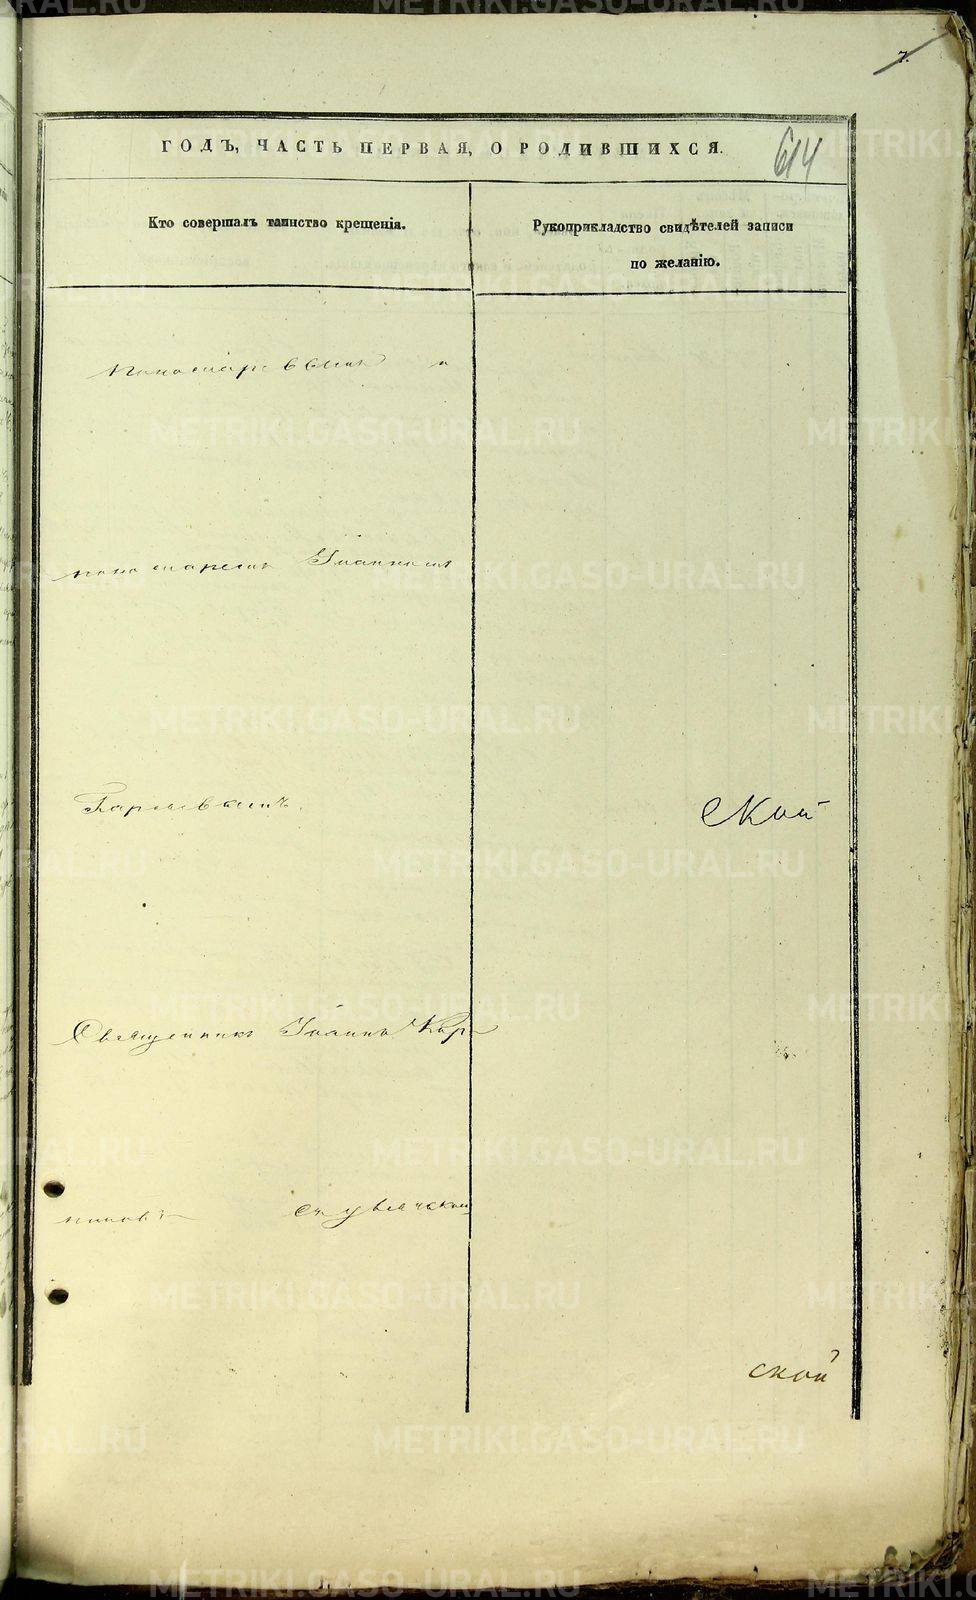 7.
ГОДЪ, ЧАСТЬ ПЕРВАЯ, О РОДИВШИХСЯ.
614
Кто совершалъ таинство крещенія.
Рукоприкладство свидѣтелей записи
по желанію.
пономаремъ Іоанномъ
ской
Священникъ Іоаннъ Кар
ской
METRIKI.GASO-URAL.RU